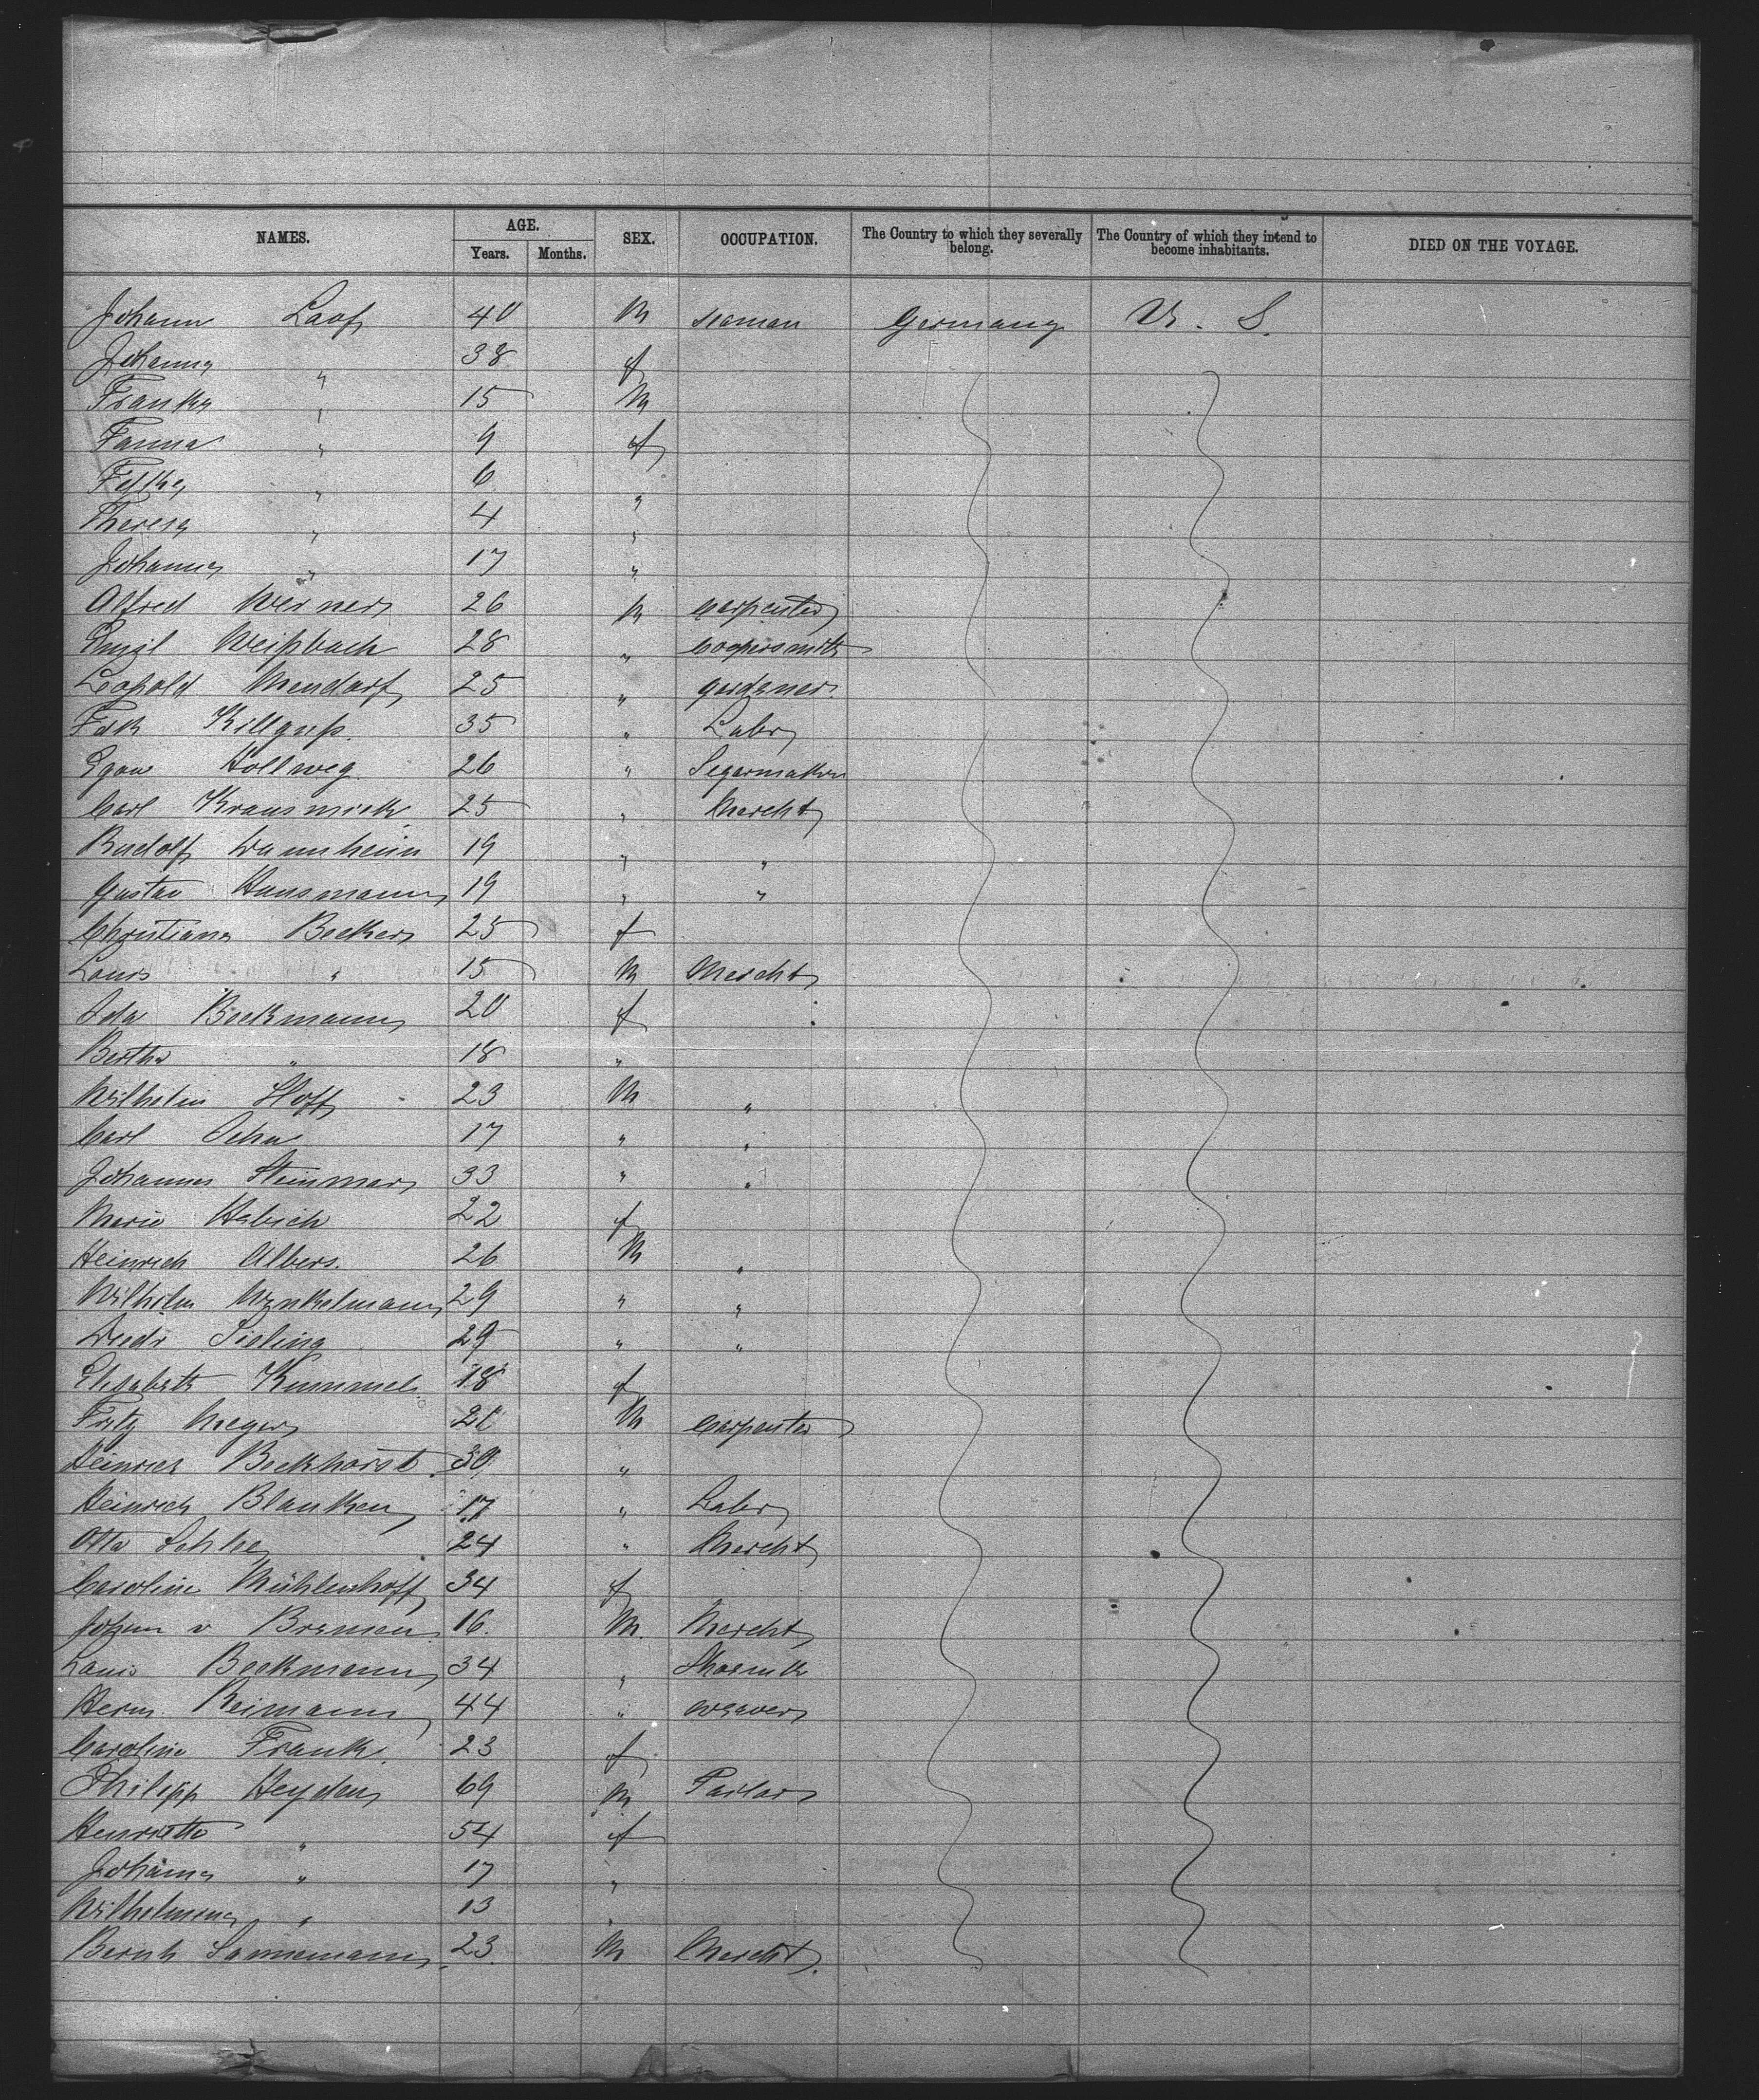 NAMES. AGE. SEX. OCCUPATION. The Country to which they severally belong. The Country of which they intend to become inhabitants. DIED ON THE VOYAGE.
Years. Months.
Johann Laof 40 M seaman Germany U. S.
Johanna " 38 f
Franks " 15 M
Fanna " 9 f
" 6 "
Theresa " 4 "
Johanna " 17 "
Alfred Werner 26 M carpenter
Emil Weißbach 28 " Coopersmith
Leopold Mendorf 25 " gardener.
Fdk Killguß. 35 " Labr
Egon Hollweg 26 " Segarmaker
Carl Krausnick 25 " Mercht
Rudolf Dannheim 19 " "
Gustav Hausmann 19 " "
Christiana Becker 25 f
Louis " 15 M Mercht
Ida Beckmann 20 f
Bertha " 18 "
Wilhelm Hoff 23 M "
Carl 17 " "
Johannes Steinmar 33 " "
Marie Habich 22 f
Heinrich Albers. 26 M "
Wilhelm Winkelmann 29 " "
Diedr Sieling 29 " "
Elisabeth Kummel 18 f
Fritz Meyer M Carpenter
Heinrich Beckhorst 30 "
Heinrich Blanken 17 " Labr
Otto 24 " Mercht
Caroline Mühlenhoff 34 f
Johann v Bremen 16. M. Mercht
Louis Beckmann 34 " Shoemk
Herm. Reimann 44 " weaver
Caroline Frank. 23 f
Philipp Heyden 69 M Tailor
Henriette " 54 f
Johanna " 17 "
Wilhelmina " 13 "
Bernh Sannemann 23. M Mercht.